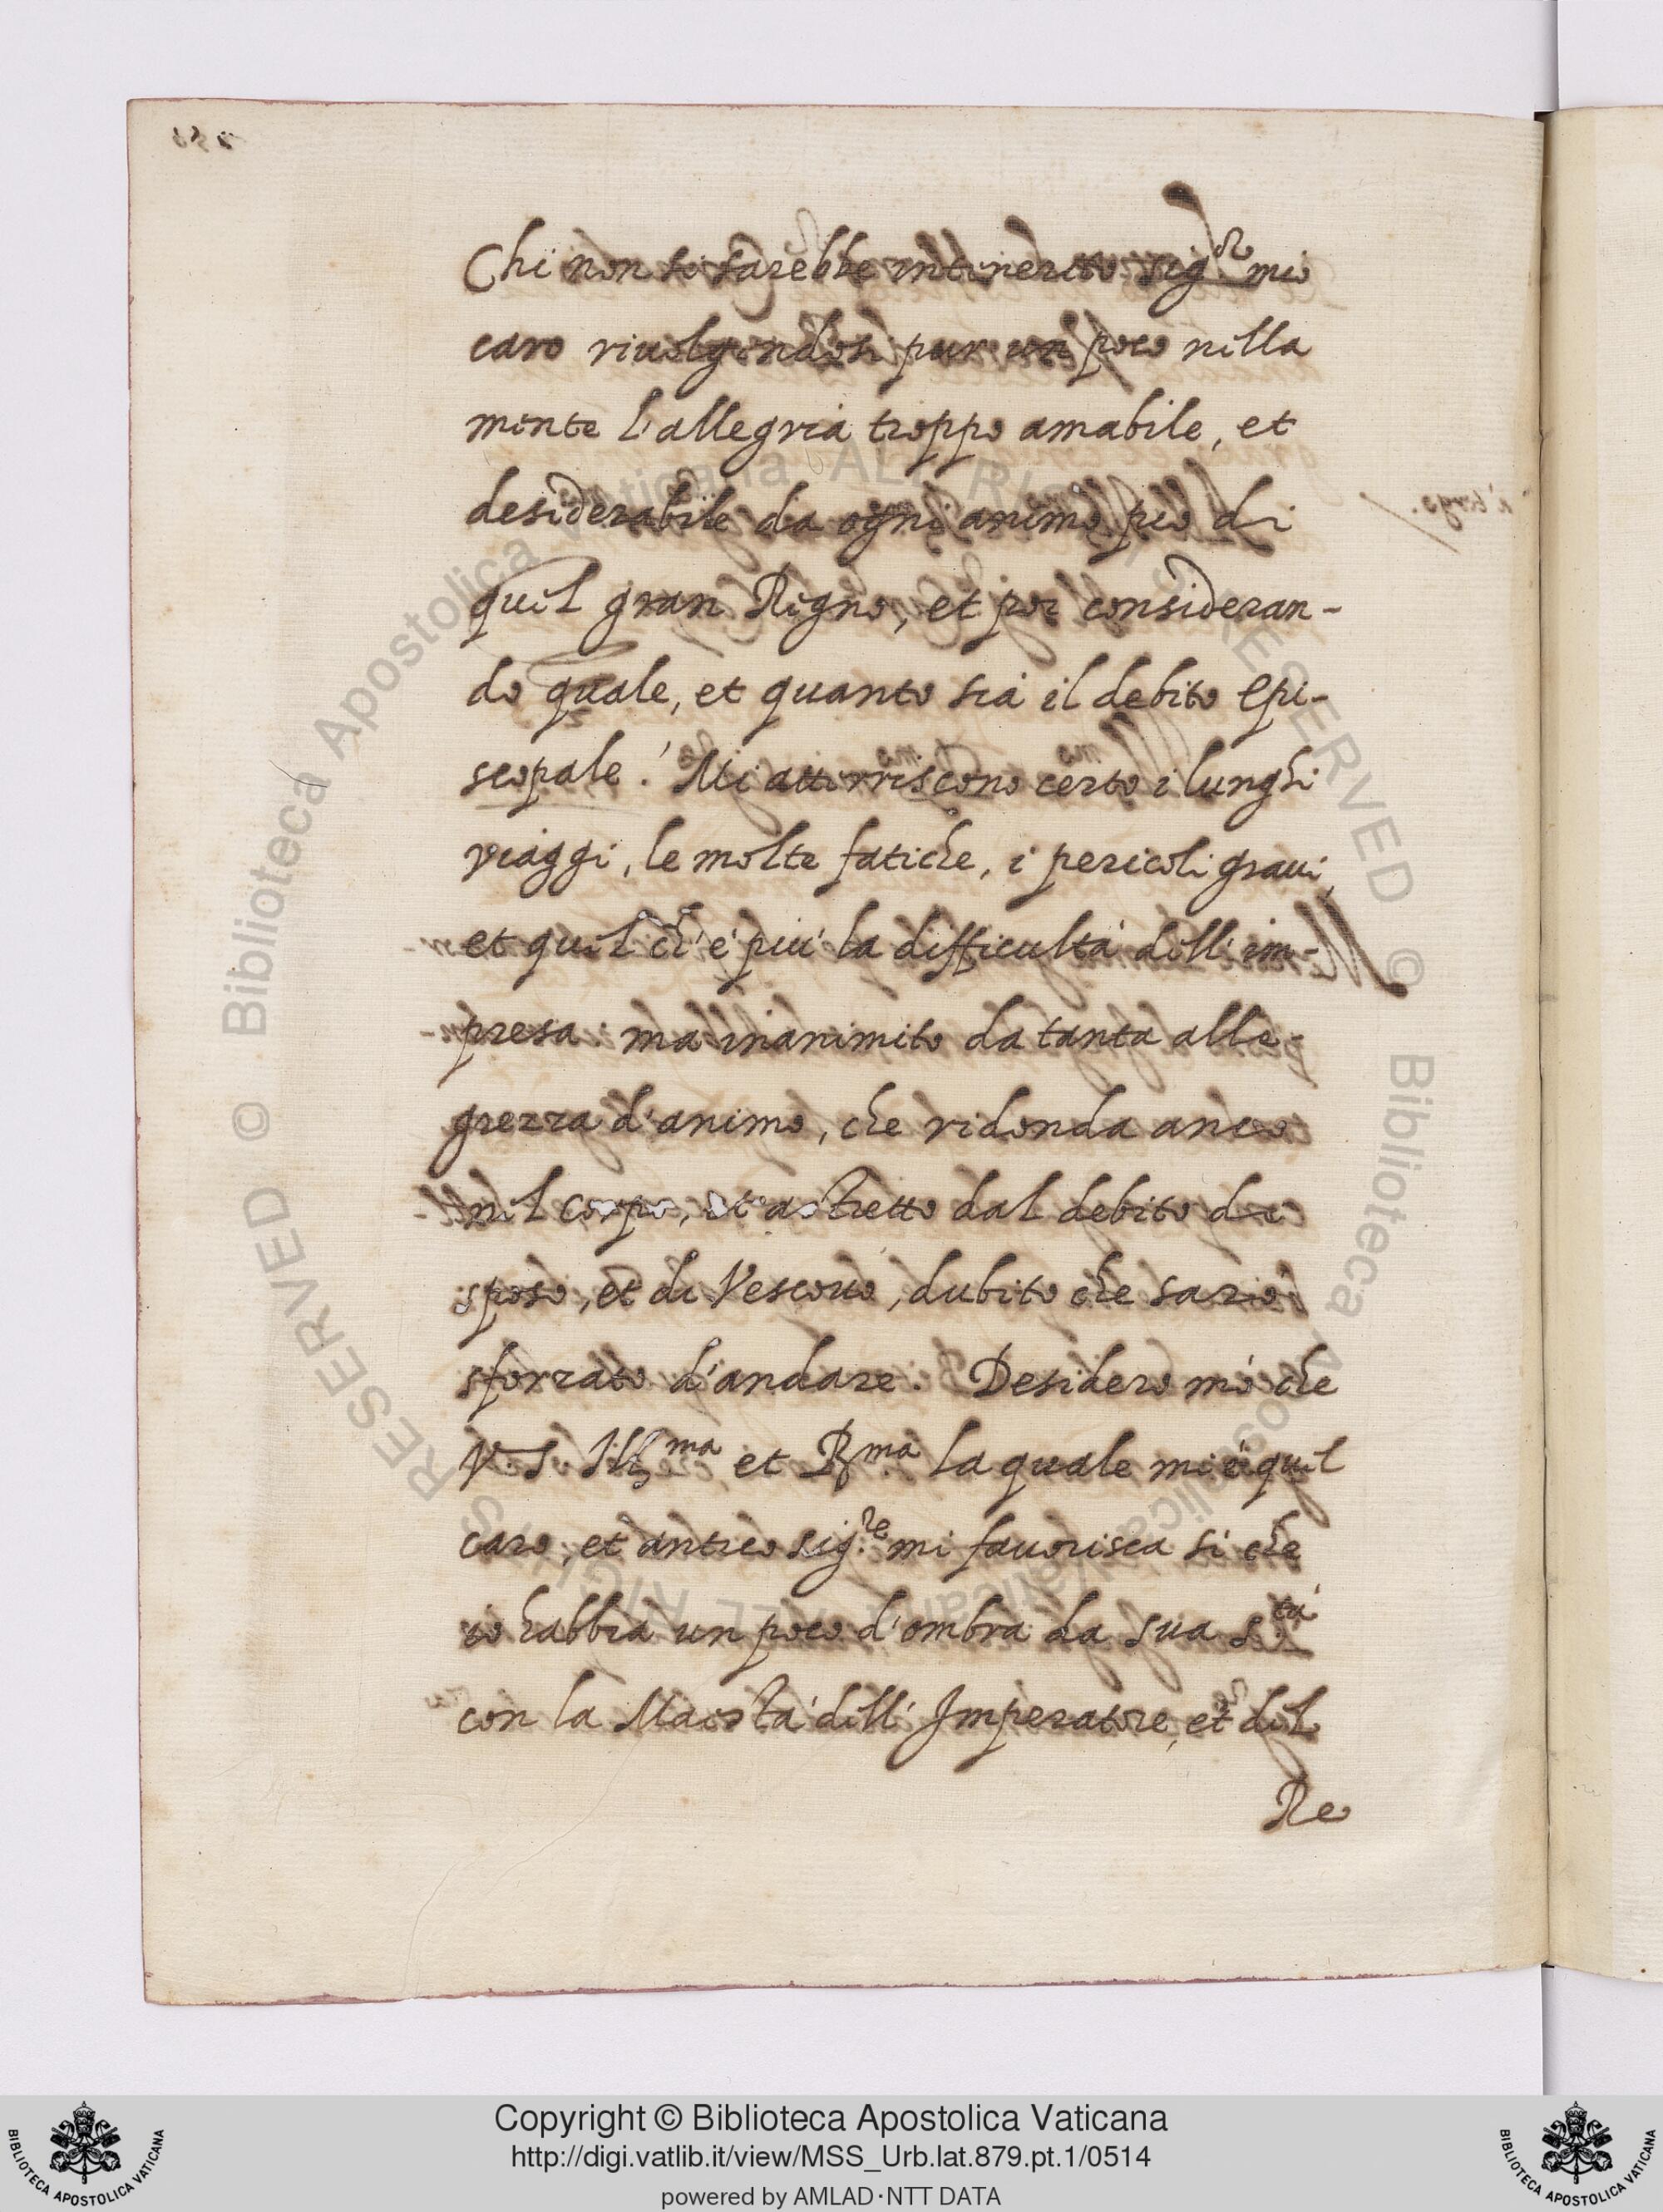 Chi non si sarebbe intenerito sig.re mio
caro riuolgendosi pur un poco nella
mente l'allegria troppo amabile, et
desiderabile da ogni animo pio di
quel gran Regno, et poi consideran-
do quale, et quanto sia il debito epi-
scopale! Mi atterriscono certo i lunghi
viaggi, le molte fatiche, i pericoli graui,
et quel ch'è più la difficultà dell'im-
presa: ma inanimito da tanta alle-
grezza d'animo, che ridonda anco
nel corpo, et astretto dal debito di
sposo, et di Vescouo, dubito che sarò
sforzato d'andare. Desidero mò che
V. S. Ill.ma et R.ma la quale mi è quel
caro, et antico sig.re mi fauorisca sì che
io habbia un poco d'ombra da sua S.tà
con la Maestà dell'Imperatore, et del
Re
Copyright © Biblioteca Apostolica Vaticana
http://digi.vatlib.it/view/MSS_Urb.lat.879.pt.1/0514
powered by AMLAD·NTT DATA
BIBLIOTECA APOSTOLICA VATICANA
BIBLIOTECA APOSTOLICA VATICANA